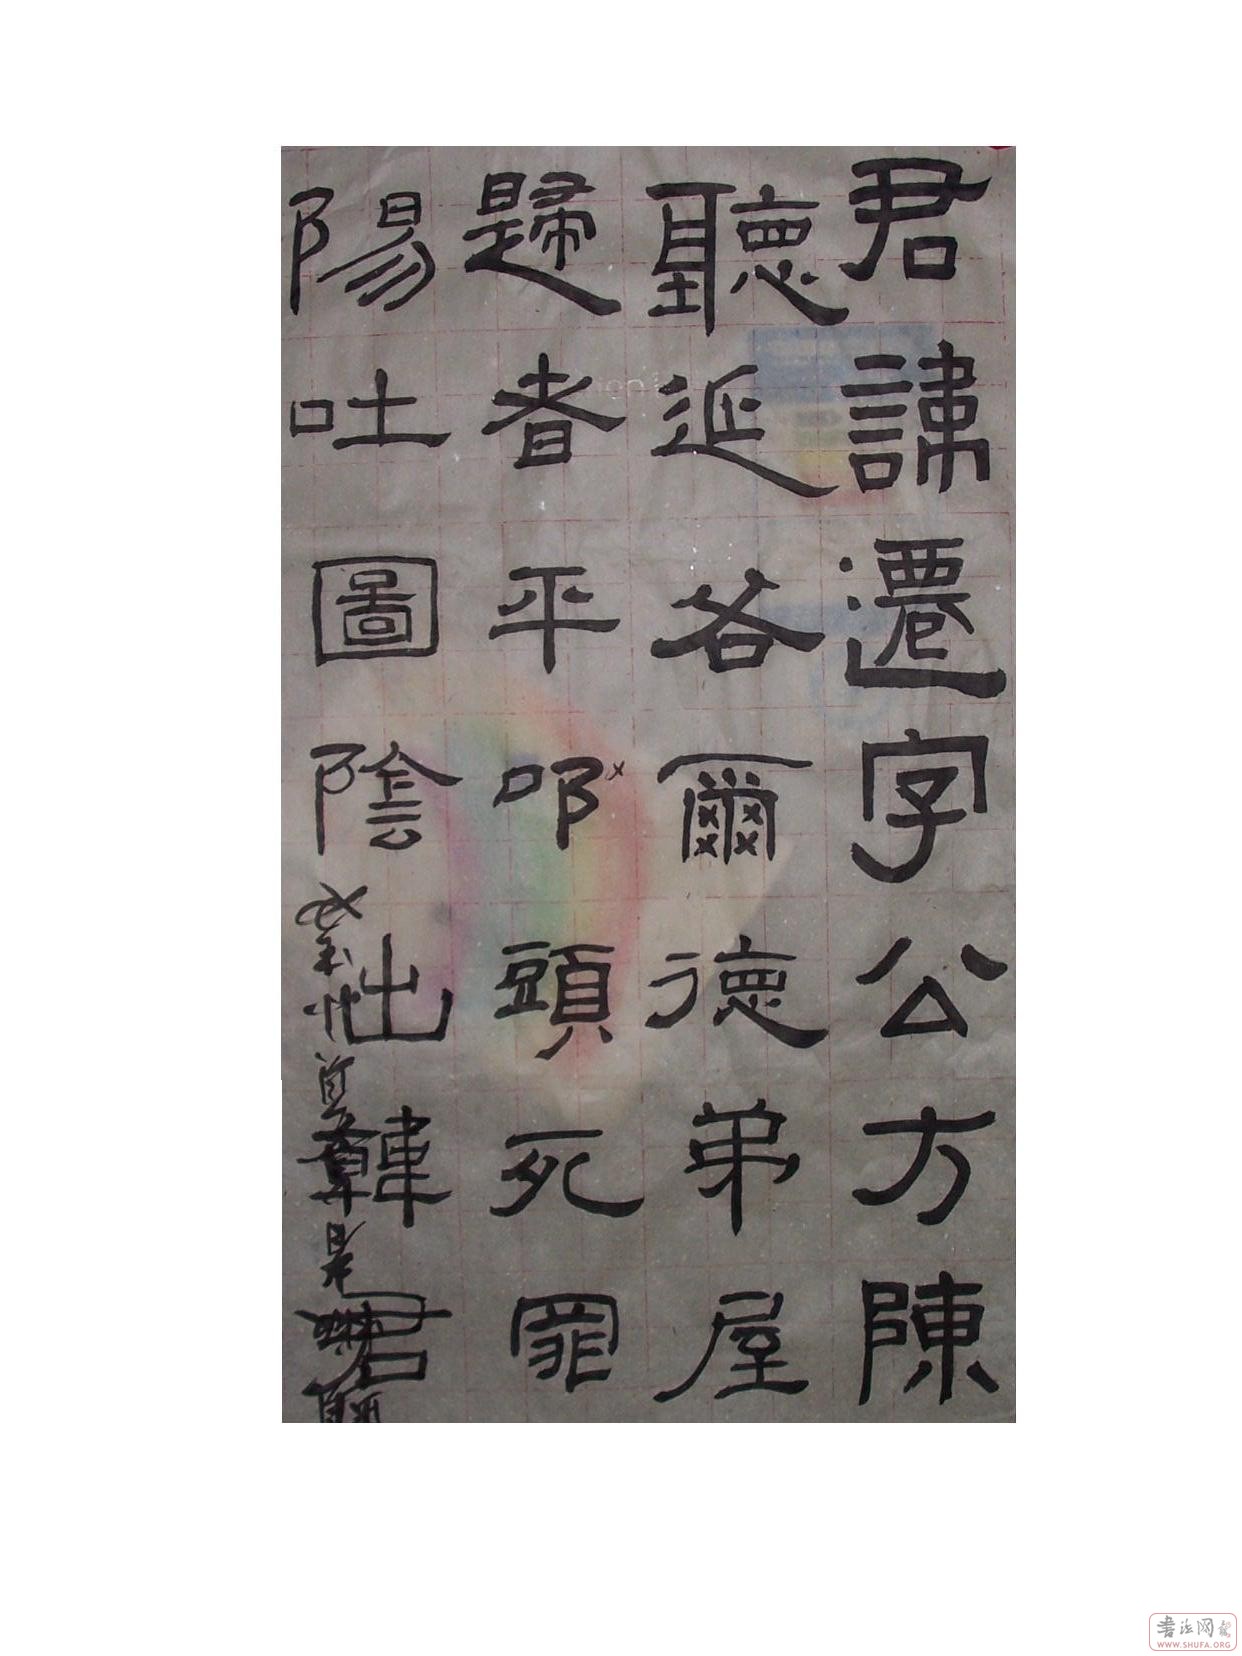 君諱遷字公方陳
聽延各爾德弟屋
歸者平叩頭死罪
陽吐圖陰出韓君
书法网
WWW.SHUFA.ORG